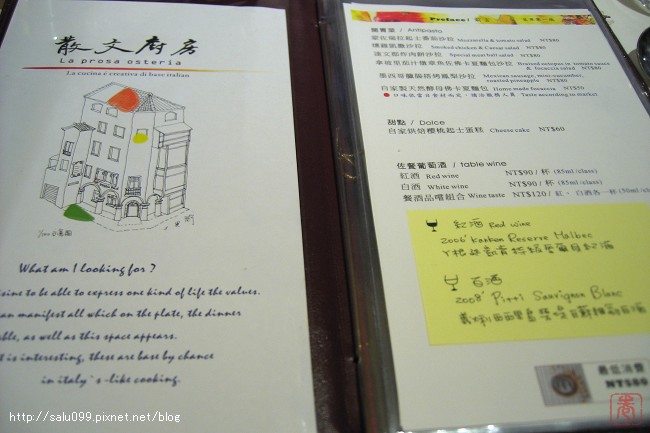 散文廚房
La prosa osteria
La cucina è creativa di base italian
What am I looking for ?
isine to be able to express one kind of life the values.
an manifest all which on the plate, the dinner
ble, as well as this space appears.
t is interesting, these are base by chance
in italy`s -like cooking.
http://salu099.pixnet.net/blog
Preface /
開胃菜 / Antipasto
Mozzarella & tomato salad NT$80
Smoked chicken & Caesar salad NT$80
Special meat ball salad NT$80
Braised octopus in tomato sauce & focaccia salad NT$80
Mexican sausage, mini-cucumber, roasted pineapple NT$80
自家製天然酵母佛卡夏麵包 Home made focaccia NT$50
Taste according to market
甜點 / Dolce
自家烘焙櫻桃起士蛋糕 Cheese cake NT$60
佐餐葡萄酒 / table wine
紅酒 Red wine NT$90 / 杯 (85ml /class)
白酒 White wine NT$90 / 杯 (85ml /class)
餐酒品嚐組合 Wine taste NT$120 / 紅、白酒各一杯 (50ml /cl
紅酒 Red wine
2006' Kaiken Reserve Malbec
白酒
2008' Pizzi Sauvignon Blanc
最低消費
NT$80